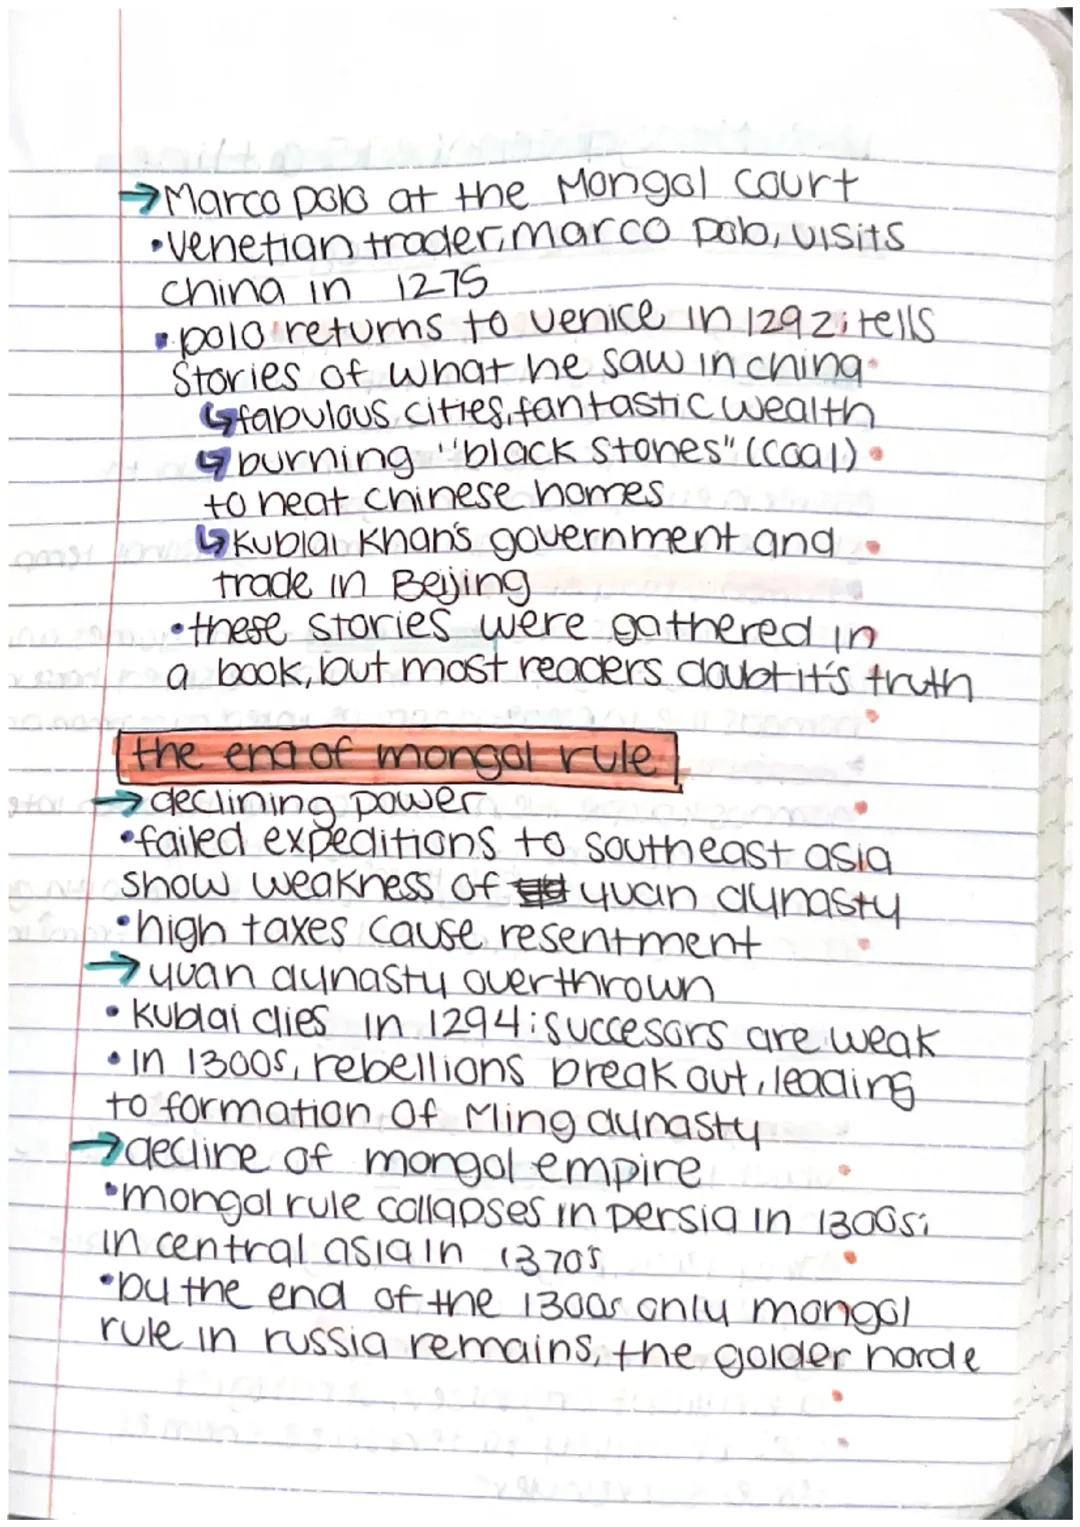 →Marco polo at the Mongol court
•Venetian trader, marco polo, visits
china in 1275
•polo returns to venice in 1292; tells
Stories of what he saw in china
↳fabulous cities, fantastic wealth
↳burning "black stones" (coal)
to heat chinese homes
↳Kublai Khan's government and
trade in Beijing
•these stories were gathered in
a book, but most readers doubt it's truth
the end of mongol rule
→declining power
•failed expeditions to southeast asia
show weakness of yuan dynasty
•high taxes cause resentment
→yuan dynasty overthrown
•Kublai dies in 1294; succesors are weak
•in 1300s, rebellions break out, leading
to formation of Ming dynasty
→decline of mongol empire
•mongol rule collapses in persia in 1300s;
in central asia in 1370's
•by the end of the 1300s only mongol
rule in russia remains, the golden horde